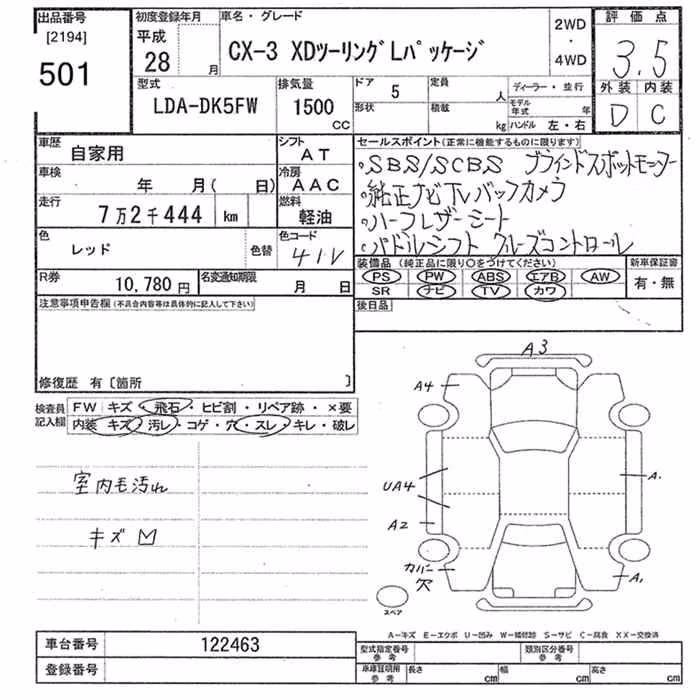 出品番号 初度登録年月 車名・グレード 評価点
[2194] 501
平成 28 月
CX-3 XDツーリングLパッケージ
2WD・4WD
3.5
型式 排気量 ドア 5 定員 人 ディーラー・並行 外装 内装
LDA-DK5FW 1500 CC 形状 積載 kg モデル年式 年 ハンドル 左・右 D C
車歴 自家用 シフト AT
セールスポイント(正常に機能するものに限ります)
車検 年 月( 日) 冷房 AAC
・SBS/SCBS ブラインドスポットモニター
走行 7万2千444 km 燃料 軽油
・純正ナビTVバックカメラ
・ハーフレザーシート
色 レッド 色替 色コード 41V
・パドルシフト クルーズコントロール
R券 10,780円 名変通知期限 月 日
装備品(純正品に限り○をつけてください) 新車保証書
PS PW ABS エアB AW 有・無
SR ナビ TV カワ
注意事項申告欄(不具合内容等は具体的に記入して下さい)
後日品
修復歴 有〔箇所 〕
検査員記入欄 FW キズ・飛石・ヒビ割・リペア跡・×要
内装 キズ・汚レ・コゲ・穴・スレ・キレ・破レ
室内毛汚れ
キズ M
A3
A4
UA4
A.
A2
カバー穴
A.
スペア
A-キズ E-エクボ U-凹み W-補修跡 S-サビ C-腐食 XX-交換済
車台番号 122463
型式指定番号 参考 類別区分番号 参考
登録番号
車庫証明用 参考 長さ cm 幅 cm 高さ cm